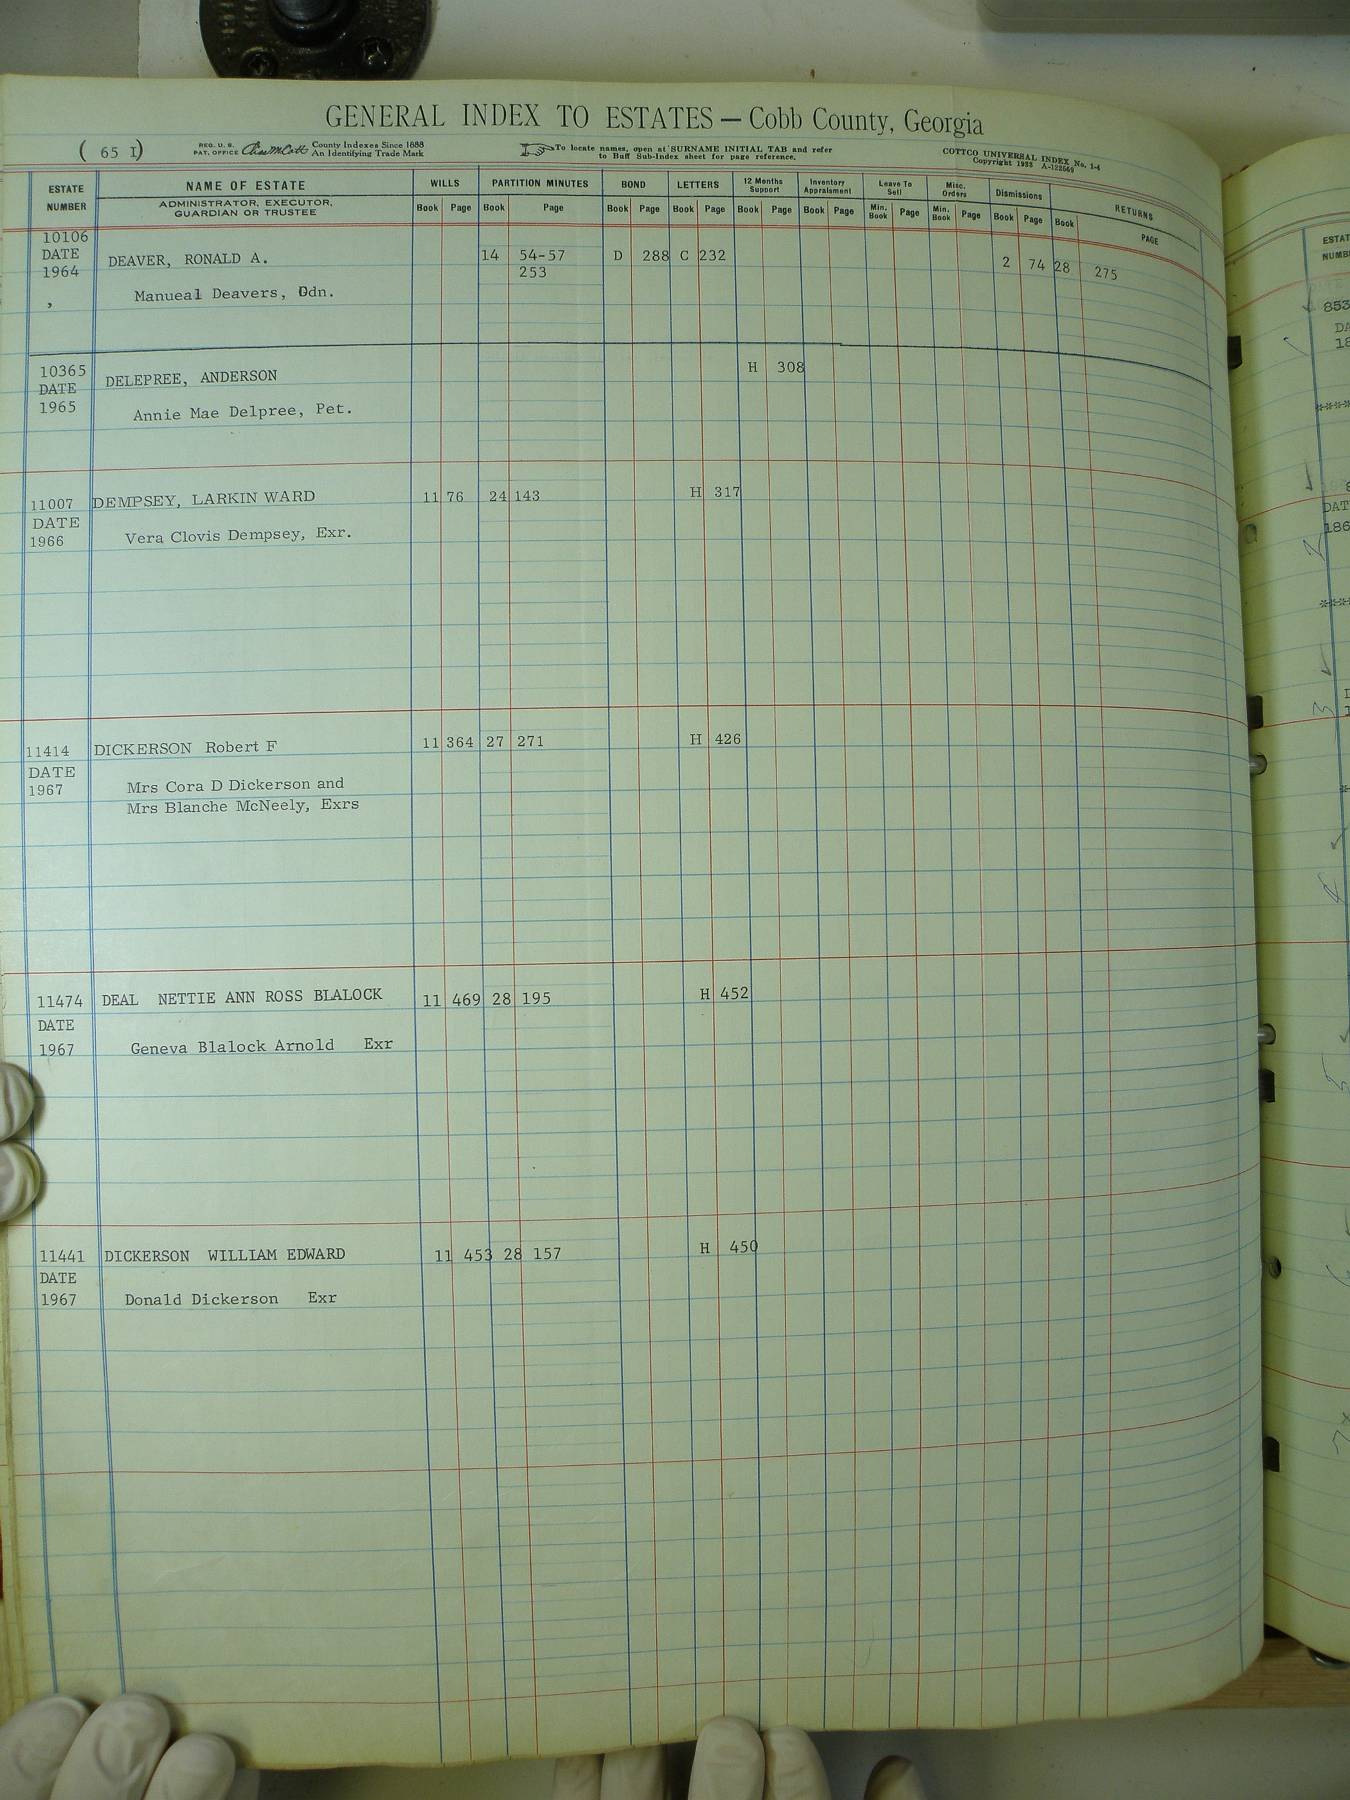 GENERAL INDEX TO ESTATES — Cobb County, Georgia
( 65 I)
REG. U. S. PAT. OFFICE County Indexes Since 1888 An Identifying Trade Mark
To locate names, open at SURNAME INITIAL TAB and refer
to Buff Sub-Index sheet for page reference.
COTTCO UNIVERSAL INDEX No. 1-4
Copyright 1933
ESTATE NUMBER NAME OF ESTATE WILLS PARTITION MINUTES BOND LETTERS 12 Months Support Inventory Appraisment Leave To Sell Misc. Orders Dismissions RETURNS
ADMINISTRATOR, EXECUTOR, GUARDIAN OR TRUSTEE Book Page Book Page Book Page Book Page Book Page Book Page Min. Book Page Min. Book Page Book Page Book PAGE
10106
DATE DEAVER, RONALD A. 14 54-57 D 288 C 232 2 74 28 275
1964 253
, Manueal Deavers, Gdn.
10365 DELEPREE, ANDERSON H 308
DATE
1965 Annie Mae Delpree, Pet.
11007 DEMPSEY, LARKIN WARD 11 76 24 143 H 317
DATE
1966 Vera Clovis Dempsey, Exr.
11414 DICKERSON Robert F 11 364 27 271 H 426
DATE
1967 Mrs Cora D Dickerson and
Mrs Blanche McNeely, Exrs
11474 DEAL NETTIE ANN ROSS BLALOCK 11 469 28 195 H 452
DATE
1967 Geneva Blalock Arnold Exr
11441 DICKERSON WILLIAM EDWARD 11 453 28 157 H 450
DATE
1967 Donald Dickerson Exr